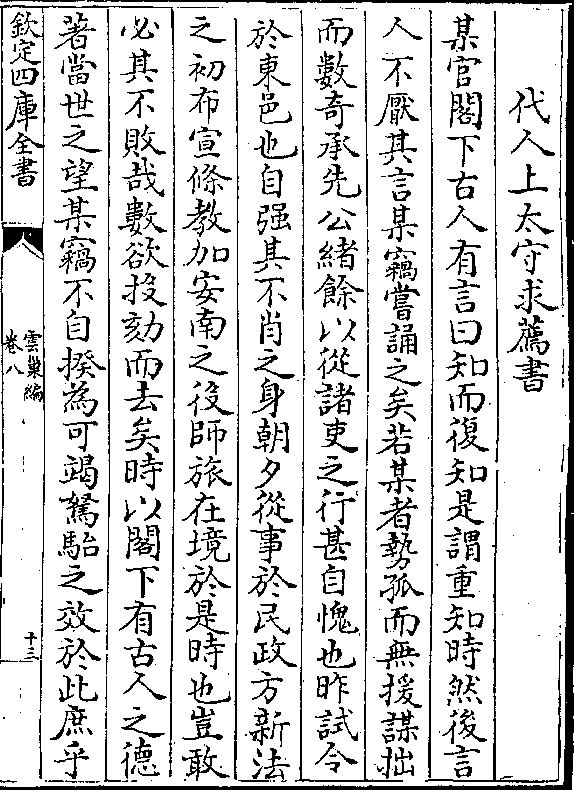 代人上太守求薦書
某官閣下古人有言曰知而復知是謂重知時然後言
人不厭其言某竊嘗誦之矣若某者勢孤而無援謀拙
而數奇承先公緒餘以從諸吏之行甚自愧也昨試令
於東邑也自强其不肖之身朝夕從事於民政方新法
之初布宣條教加安南之役師旅在境於是時也豈敢
必其不敗哉數欲投劾而去矣時以閣下有古人之德
著當世之望某竊不自揆為可竭駑駘之效於此庶乎
欽定四庫全書
雲巢編
卷八
十三